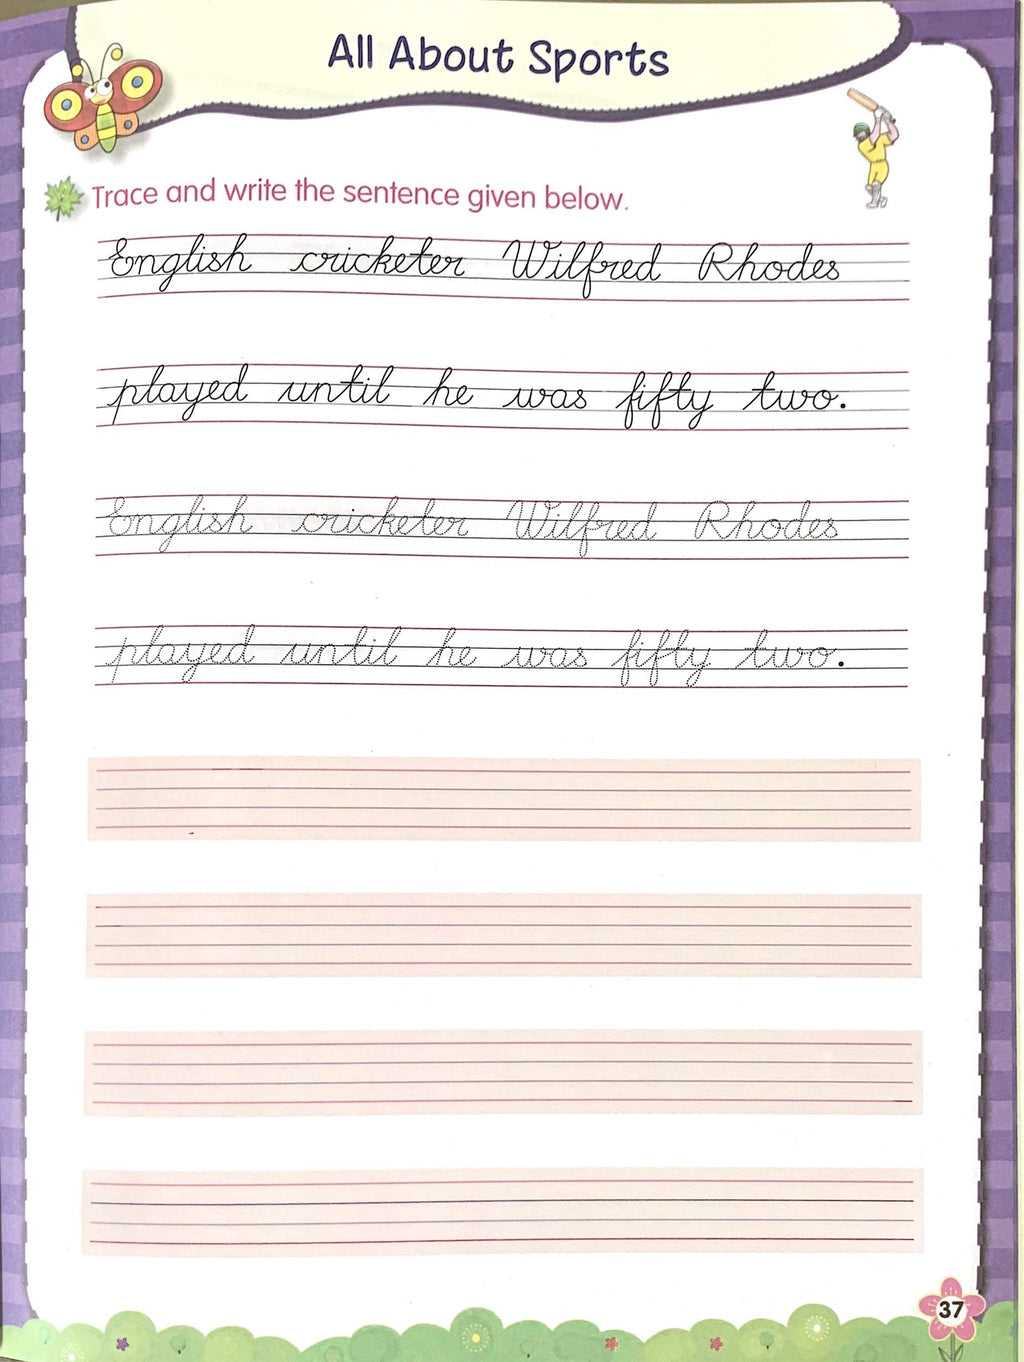 All About Sports
Trace and write the sentence given below.
English cricketer Wilfred Rhodes
played until he was fifty two.
English cricketer Wilfred Rhodes
played until he was fifty two.
37